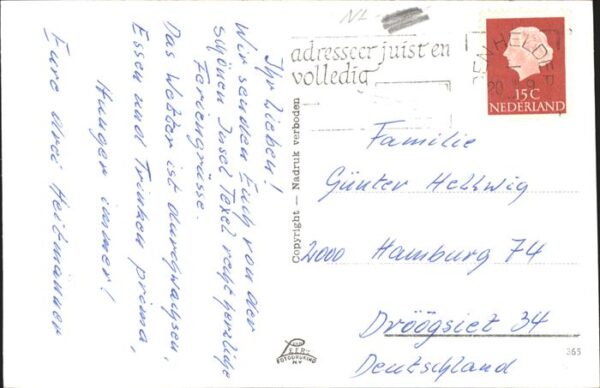 Ihr Lieben!
Wir senden Euch von der
schönen Insel Texel recht herzliche
Feriengrüsse.
Das Wetter ist durchwachsen,
Essen und Trinken prima,
Hunger immer!
Eure drei Heitmänner
Copyright — Nadruk verboden
NL
adresseer juist en
volledig
DEN HELDER
20
15 C
NEDERLAND
Familie
Günter Hellwig
2000 Hamburg 74
Dröögsiet 34
Deutschland
FOTODRUKIND
N.V.
365